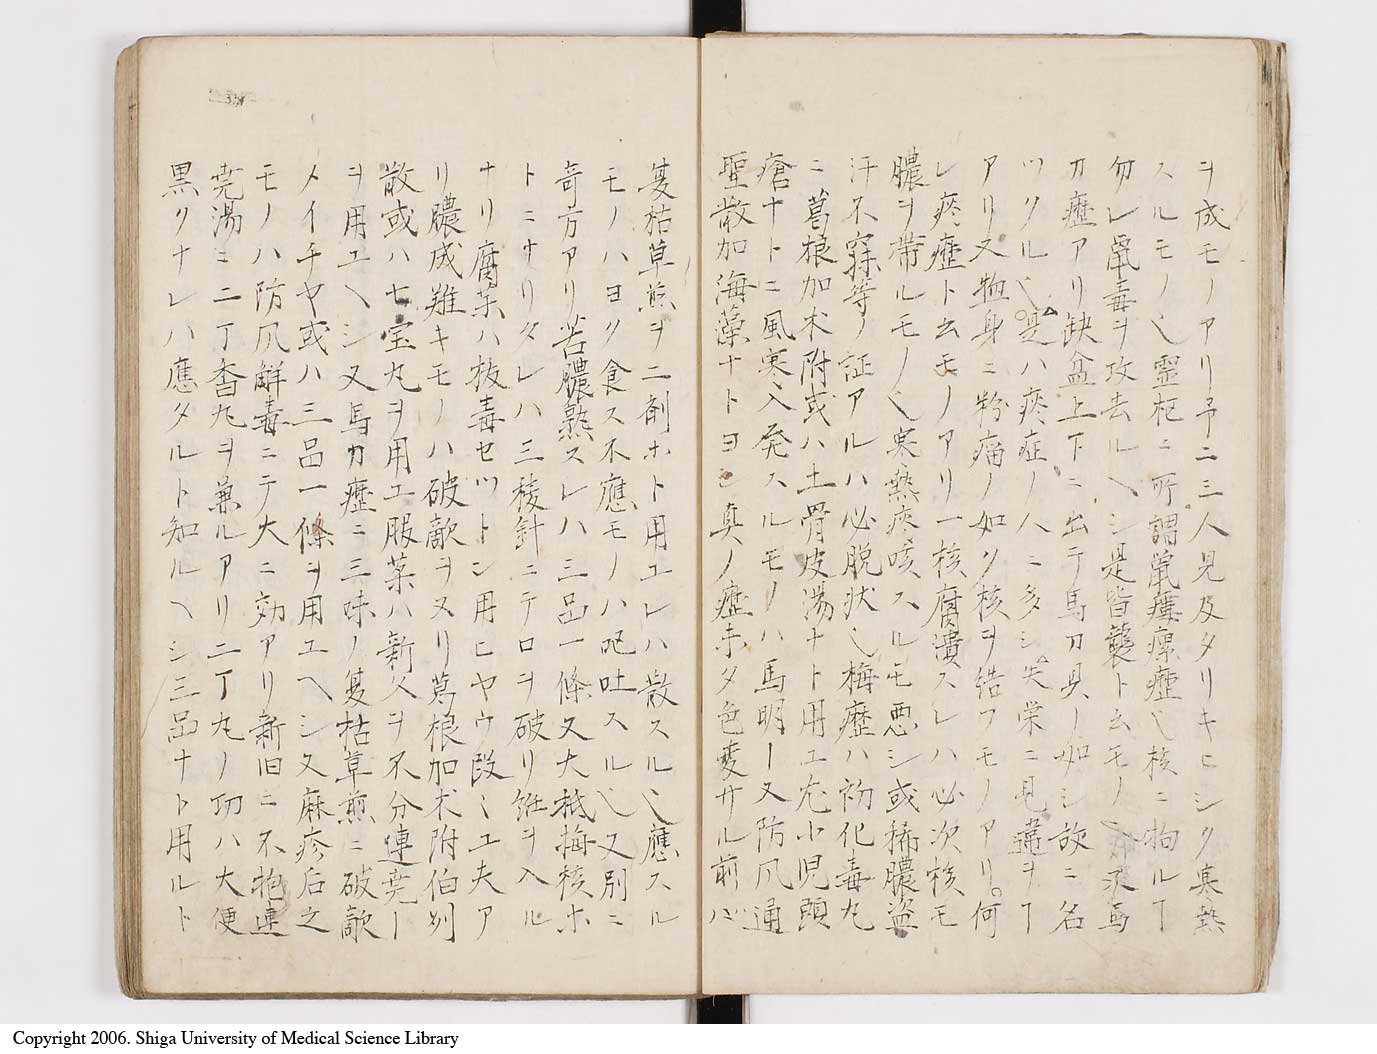 ヲ成モノアリ予二三人見及タリキヒシク寒熱
スルモノ〆霊枢ニ所謂鼠瘻瘰癧〆核ニ拘ルヿ
勿レ鼠毒ヲ攻去ルヘシ是皆襲ト云モノ〆又馬
刀癧アリ缺盆上下ニ出テ馬刀貝ノ如シ故ニ名
ツクル〆是ハ疼症ノ人ニ多シ失栄ニ見違ヲヿ
アリ又物身ニ粉瘤ノ如ク核ヲ結フモノアリ何
レ疼癧ト云モノアリ一核腐潰スレハ必次核モ
膿ヲ帯ルモノ〆寒熱痰咳スルモ悪シ或稀膿盗
汗不寐等ノ証アルハ必脱状〆梅癧ハ初化毒丸
ニ葛根加朮附或ハ土骨皮湯ナト用ユ尤小児頭
瘡ナトニ風寒入発スルモノハ馬明ー又防风通
聖散加海藻ナトヨシ真ノ癧未タ色変サル前ハ
夏枯草煎ヲ二剤ホト用ユレハ散スル〆應スル
モノハヨク食ス不應モノハ呕吐スル〆又別ニ
奇方アリ若膿熟スレハ三品一條又大抵梅核ホ
トニナリタレハ三稜針ニテ口ヲ破リ紝ヲ入ル
ナリ腐薬ハ抜毒セットシ用ヒヤウ段〻工夫ア
リ膿成難キモノハ破敵ヲヌリ葛根加朮附伯州
散或ハ七宝丸ヲ用ユ服薬ハ新久ヲ不分連堯ー
ヲ用ユヘシ又馬刀癧ニ三味ノ夏枯草煎ニ破敵
メイチヤ或ハ三品一條ヲ用ユヘシ又麻疹后之
モノハ防风解毒ニテ大ニ効アリ新旧ニ不拘連
堯湯ニ二丁香丸ヲ兼ルアリ二丁丸ノ功ハ大便
黒クナレハ應タルト知ルヘシ三品ナト用ルト
Copyright 2006. Shiga University of Medical Science Library